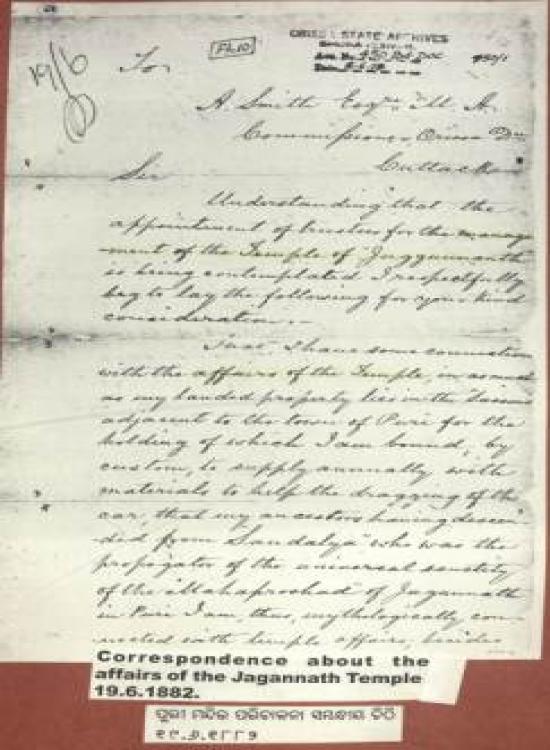 19/6
To,
ORISSA STATE ARCHIVES
A. Smith Esqre M. A.
Commissioner Orissa Dn
Cuttack
Sir
Understanding that the
appointment of trustees for the manage
ment of the Temple of Juggurnath
is being contemplated I respectfully
beg to lay the following for your kind
consideration.—
That I have some connection
with the affairs of the Temple, in as much
as my landed property lies in the
adjacent to the town of Puri for the
holding of which I am bound, by
custom, to supply annually with
materials to help the dragging of the
car, that my ancestors having descen-
ded from Sandalya who was the
propogator of the universal sanctity
of the Mahaproshad of Jagannath
in Puri I am, thus, mythologically con-
nected with temple affairs, besides
Correspondence about the
affairs of the Jagannath Temple
19.6.1882.
ପୁରୀ ମନ୍ଦିର ପରିଚାଳନା ସମ୍ବନ୍ଧୀୟ ଚିଠି
୧୯.୬.୧୮୮୨